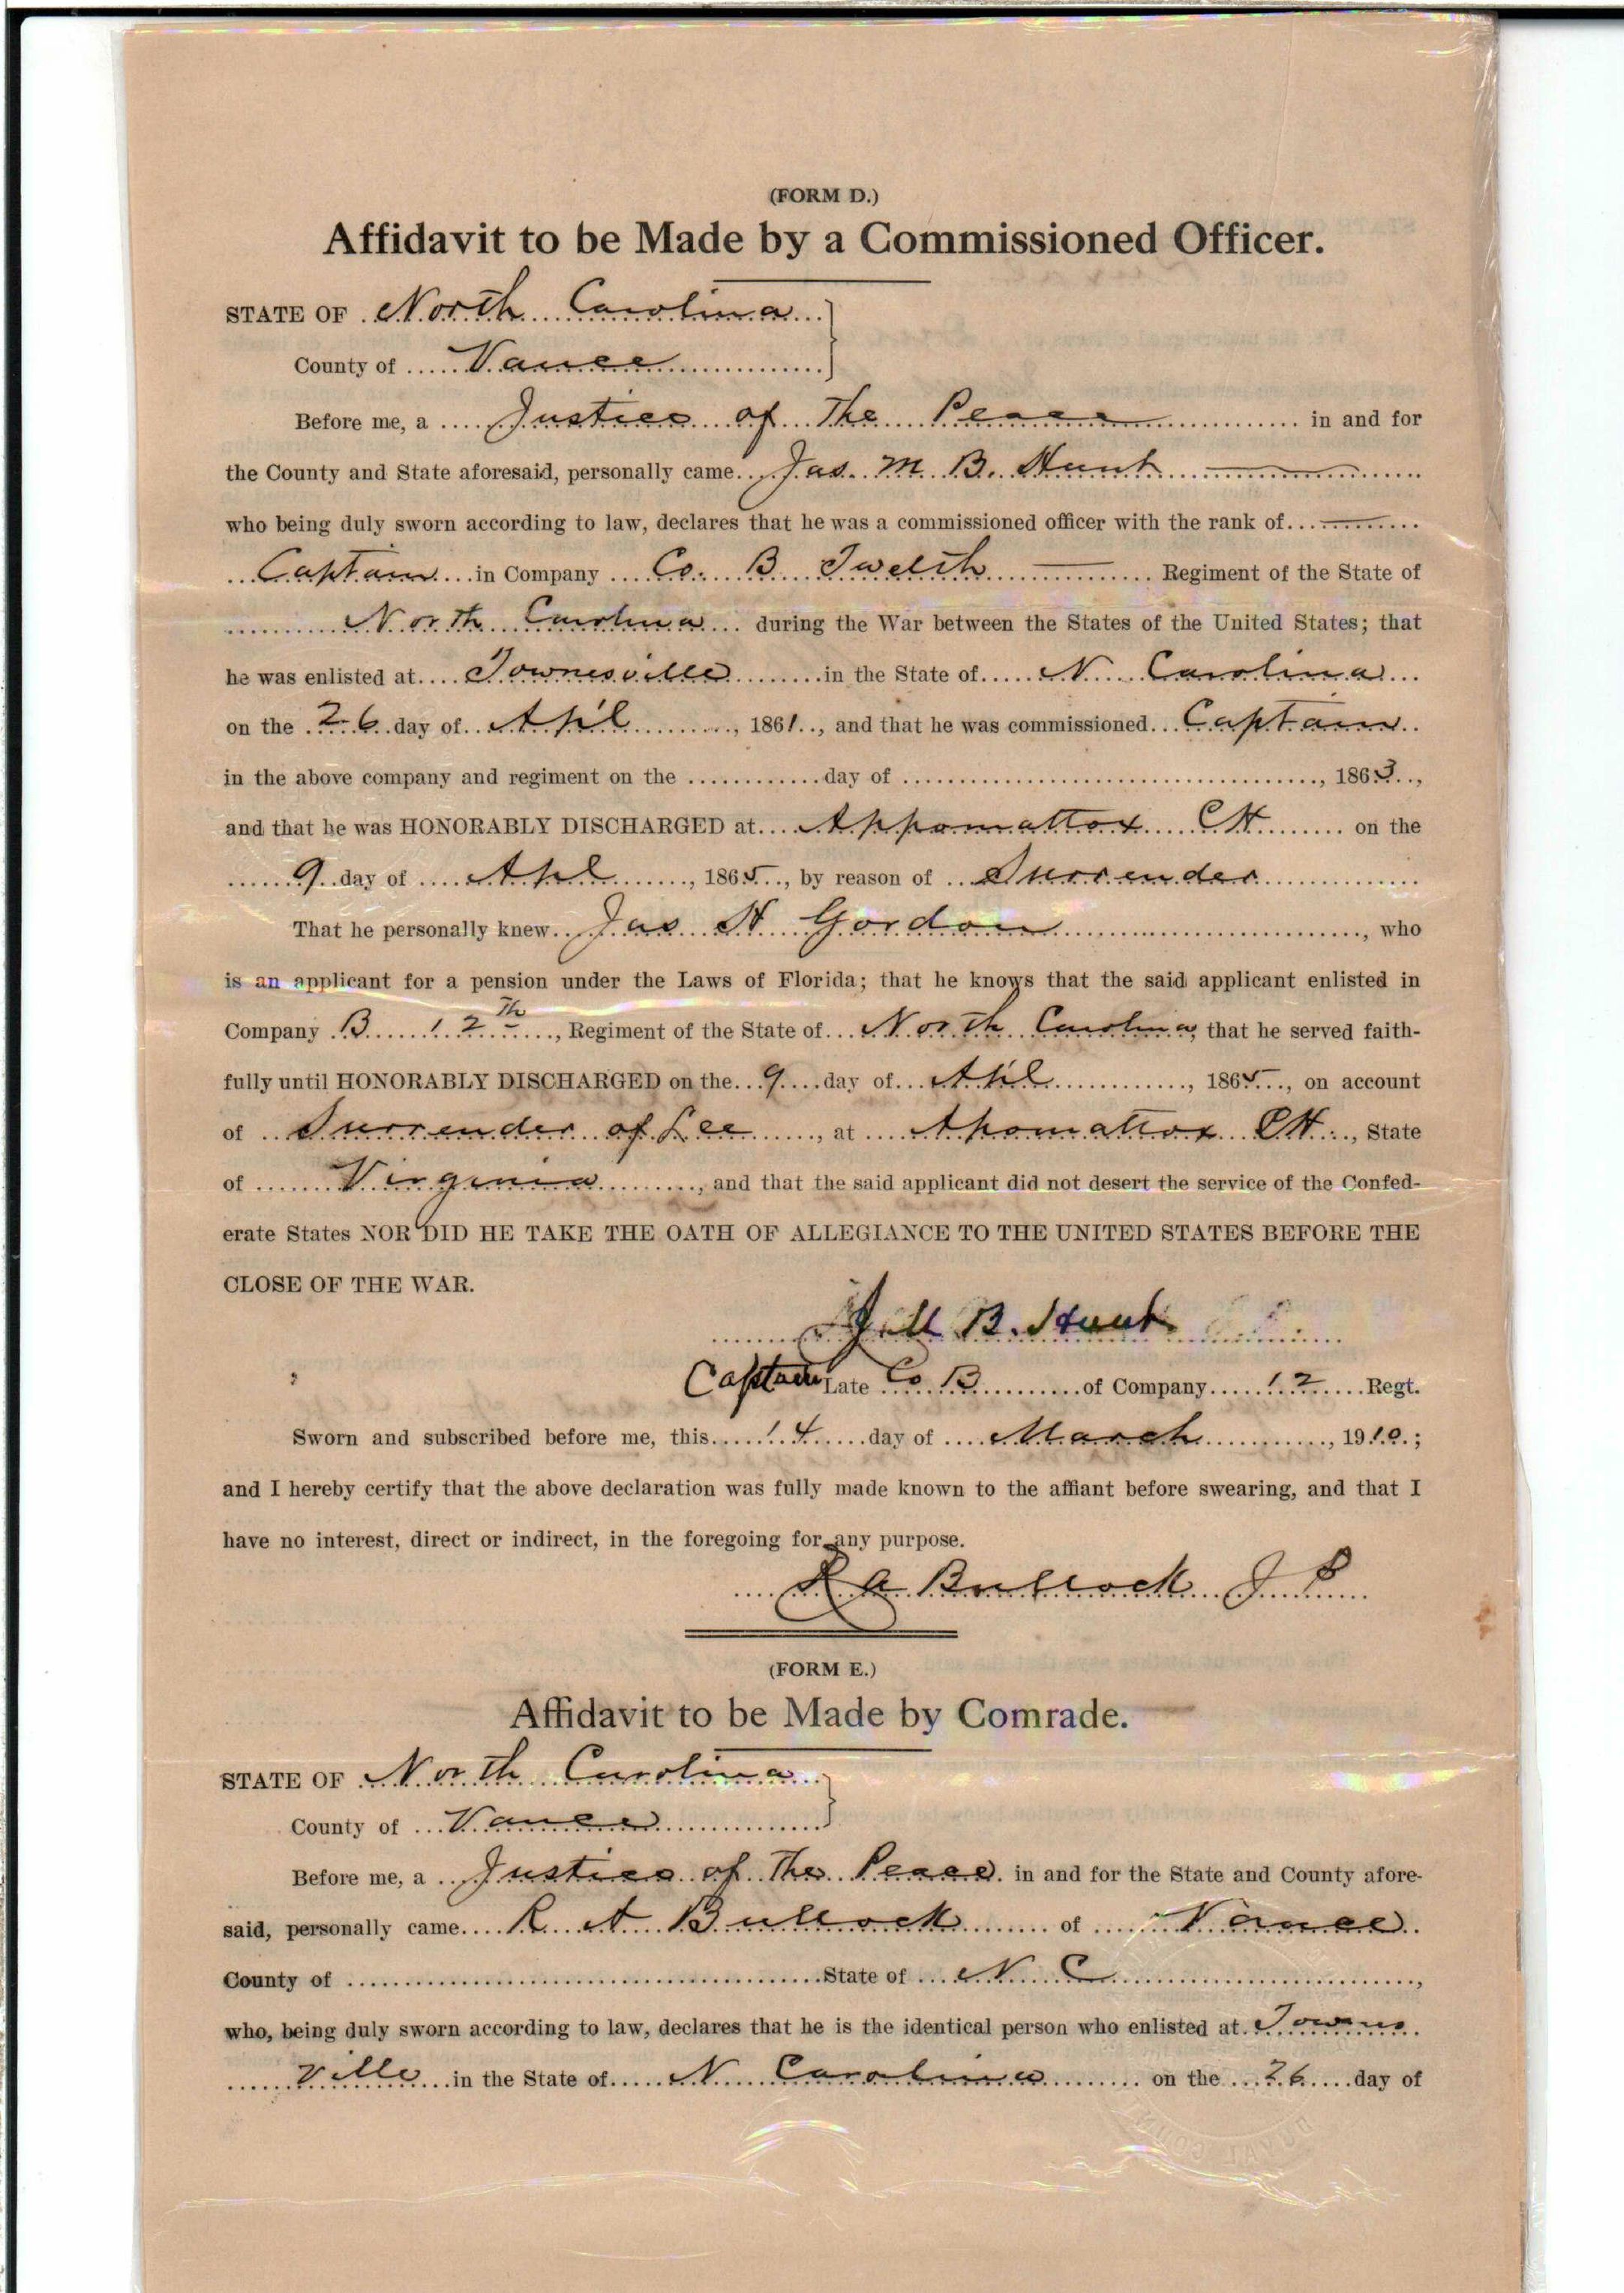 (FORM D.)
Affidavit to be Made by a Commissioned Officer.
STATE OF North Carolina
County of Vance
Before me, a Justice of The Peace in and for
the County and State aforesaid, personally came Jas. M. B. Hunt
who being duly sworn according to law, declares that he was a commissioned officer with the rank of
Captain in Company Co. B Twelth Regiment of the State of
North Carolina during the War between the States of the United States; that
he was enlisted at Townesville in the State of N. Carolina
on the 26 day of Ap'l, 1861, and that he was commissioned Captain
in the above company and regiment on the day of , 1863,
and that he was HONORABLY DISCHARGED at Appomattox CH on the
9 day of Apl, 1865, by reason of Surrender
That he personally knew Jas H Gordon, who
is an applicant for a pension under the Laws of Florida; that he knows that the said applicant enlisted in
Company B 12th, Regiment of the State of North Carolina, that he served faith-
fully until HONORABLY DISCHARGED on the 9 day of Ap'l, 1865, on account
of Surrender of Lee, at Apomattox CH, State
of Virginia, and that the said applicant did not desert the service of the Confed-
erate States NOR DID HE TAKE THE OATH OF ALLEGIANCE TO THE UNITED STATES BEFORE THE
CLOSE OF THE WAR.
J M B. Hunt
Captain Late Co B of Company 12 Regt.
Sworn and subscribed before me, this 14 day of March, 1910;
and I hereby certify that the above declaration was fully made known to the affiant before swearing, and that I
have no interest, direct or indirect, in the foregoing for any purpose.
R A Bullock J P
(FORM E.)
Affidavit to be Made by Comrade.
STATE OF North Carolina
County of Vance
Before me, a Justice of The Peace in and for the State and County afore-
said, personally came R A Bullock of Vance
County of State of N C,
who, being duly sworn according to law, declares that he is the identical person who enlisted at Towns
ville in the State of N Carolina on the 26 day of